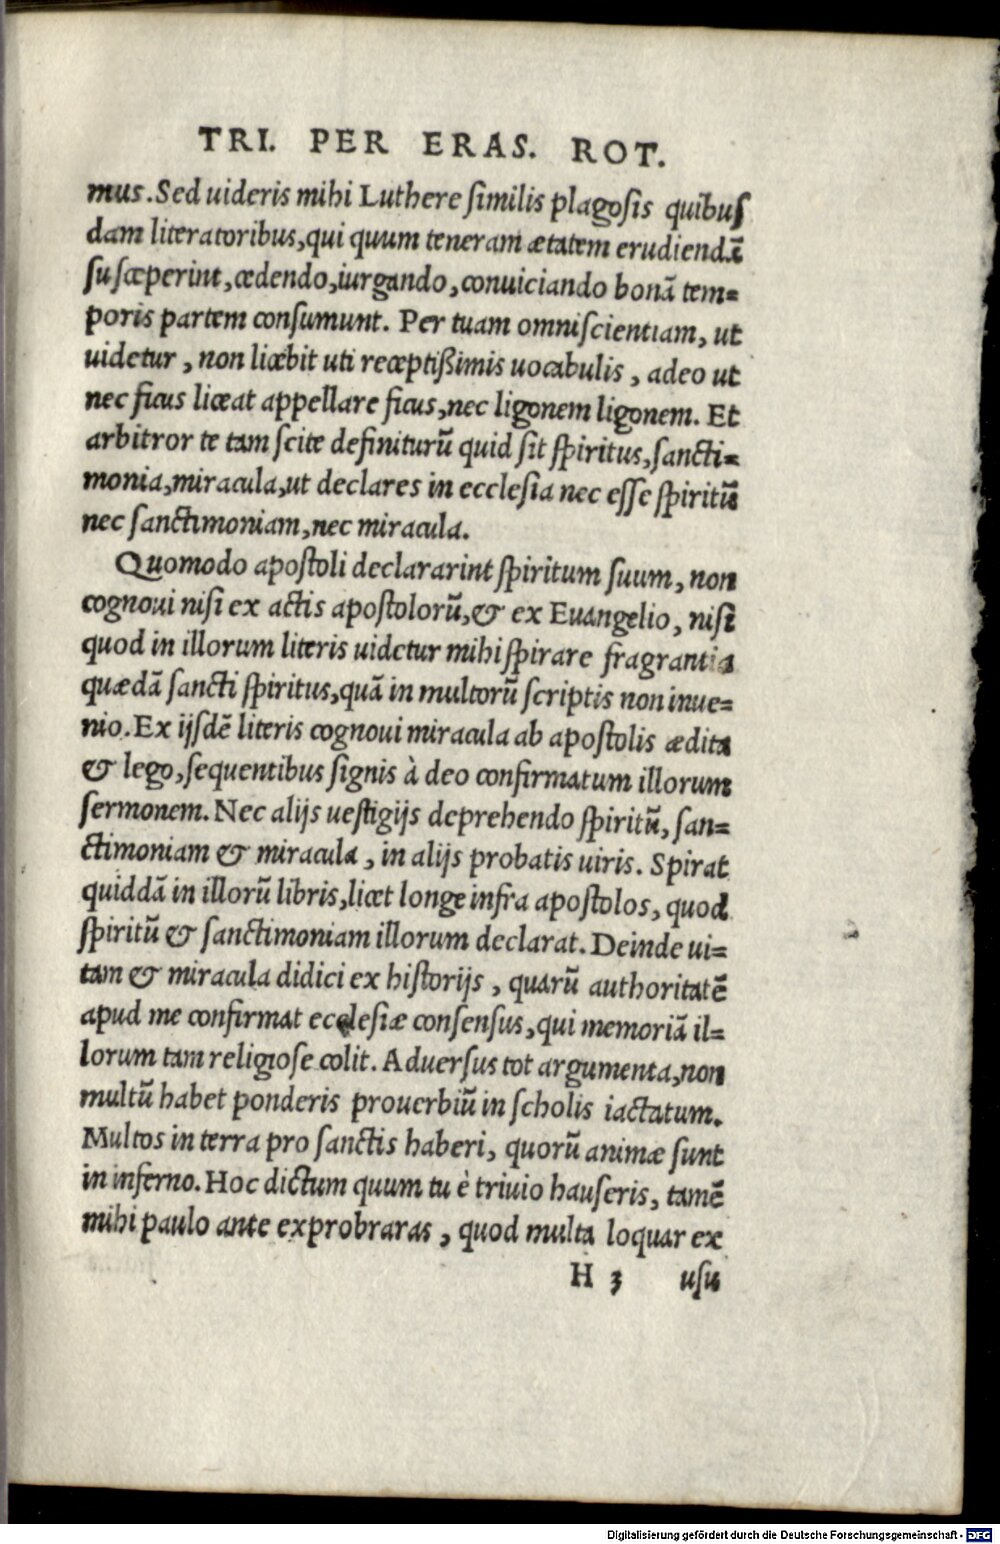 TRI. PER ERAS. ROT.
mus. Sed uideris mihi Luthere ſimilis plagoſis quibuſ
dam literatoribus, qui quum teneram ætatem erudiendā
ſuſceperint, cædendo, iurgando, conuiciando bonā tem=
poris partem conſumunt. Per tuam omniſcientiam, ut
uidetur, non licebit uti receptißimis uocabulis, adeo ut
nec ficus liceat appellare ficus, nec ligonem ligonem. Et
arbitror te tam ſcite definiturū quid ſit ſpiritus, ſancti=
monia, miracula, ut declares in eccleſia nec eſſe ſpiritū
nec ſanctimoniam, nec miracula.
Quomodo apoſtoli declararint ſpiritum ſuum, non
cognoui niſi ex actis apoſtolorū, & ex Euangelio, niſi
quod in illorum literis uidetur mihi ſpirare fragrantia
quædā ſancti ſpiritus, quā in multorū ſcriptis non inue=
nio. Ex ijſdē literis cognoui miracula ab apoſtolis ædita
& lego, ſequentibus ſignis à deo confirmatum illorum
ſermonem. Nec alijs ueſtigijs deprehendo ſpiritū, ſan=
ctimoniam & miracula, in alijs probatis uiris. Spirat
quiddā in illorū libris, licet longe infra apoſtolos, quod
ſpiritū & ſanctimoniam illorum declarat. Deinde ui=
tam & miracula didici ex hiſtorijs, quarū authoritatē
apud me confirmat eccleſiæ conſenſus, qui memoriā il=
lorum tam religioſe colit. Aduerſus tot argumenta, non
multū habet ponderis prouerbiū in ſcholis iactatum.
Multos in terra pro ſanctis haberi, quorū animæ ſunt
in inferno. Hoc dictum quum tu è triuio hauſeris, tamē
mihi paulo ante exprobraras, quod multa loquar ex
H 3 uſu
Digitalisierung gefördert durch die Deutsche Forschungsgemeinschaft - DFG